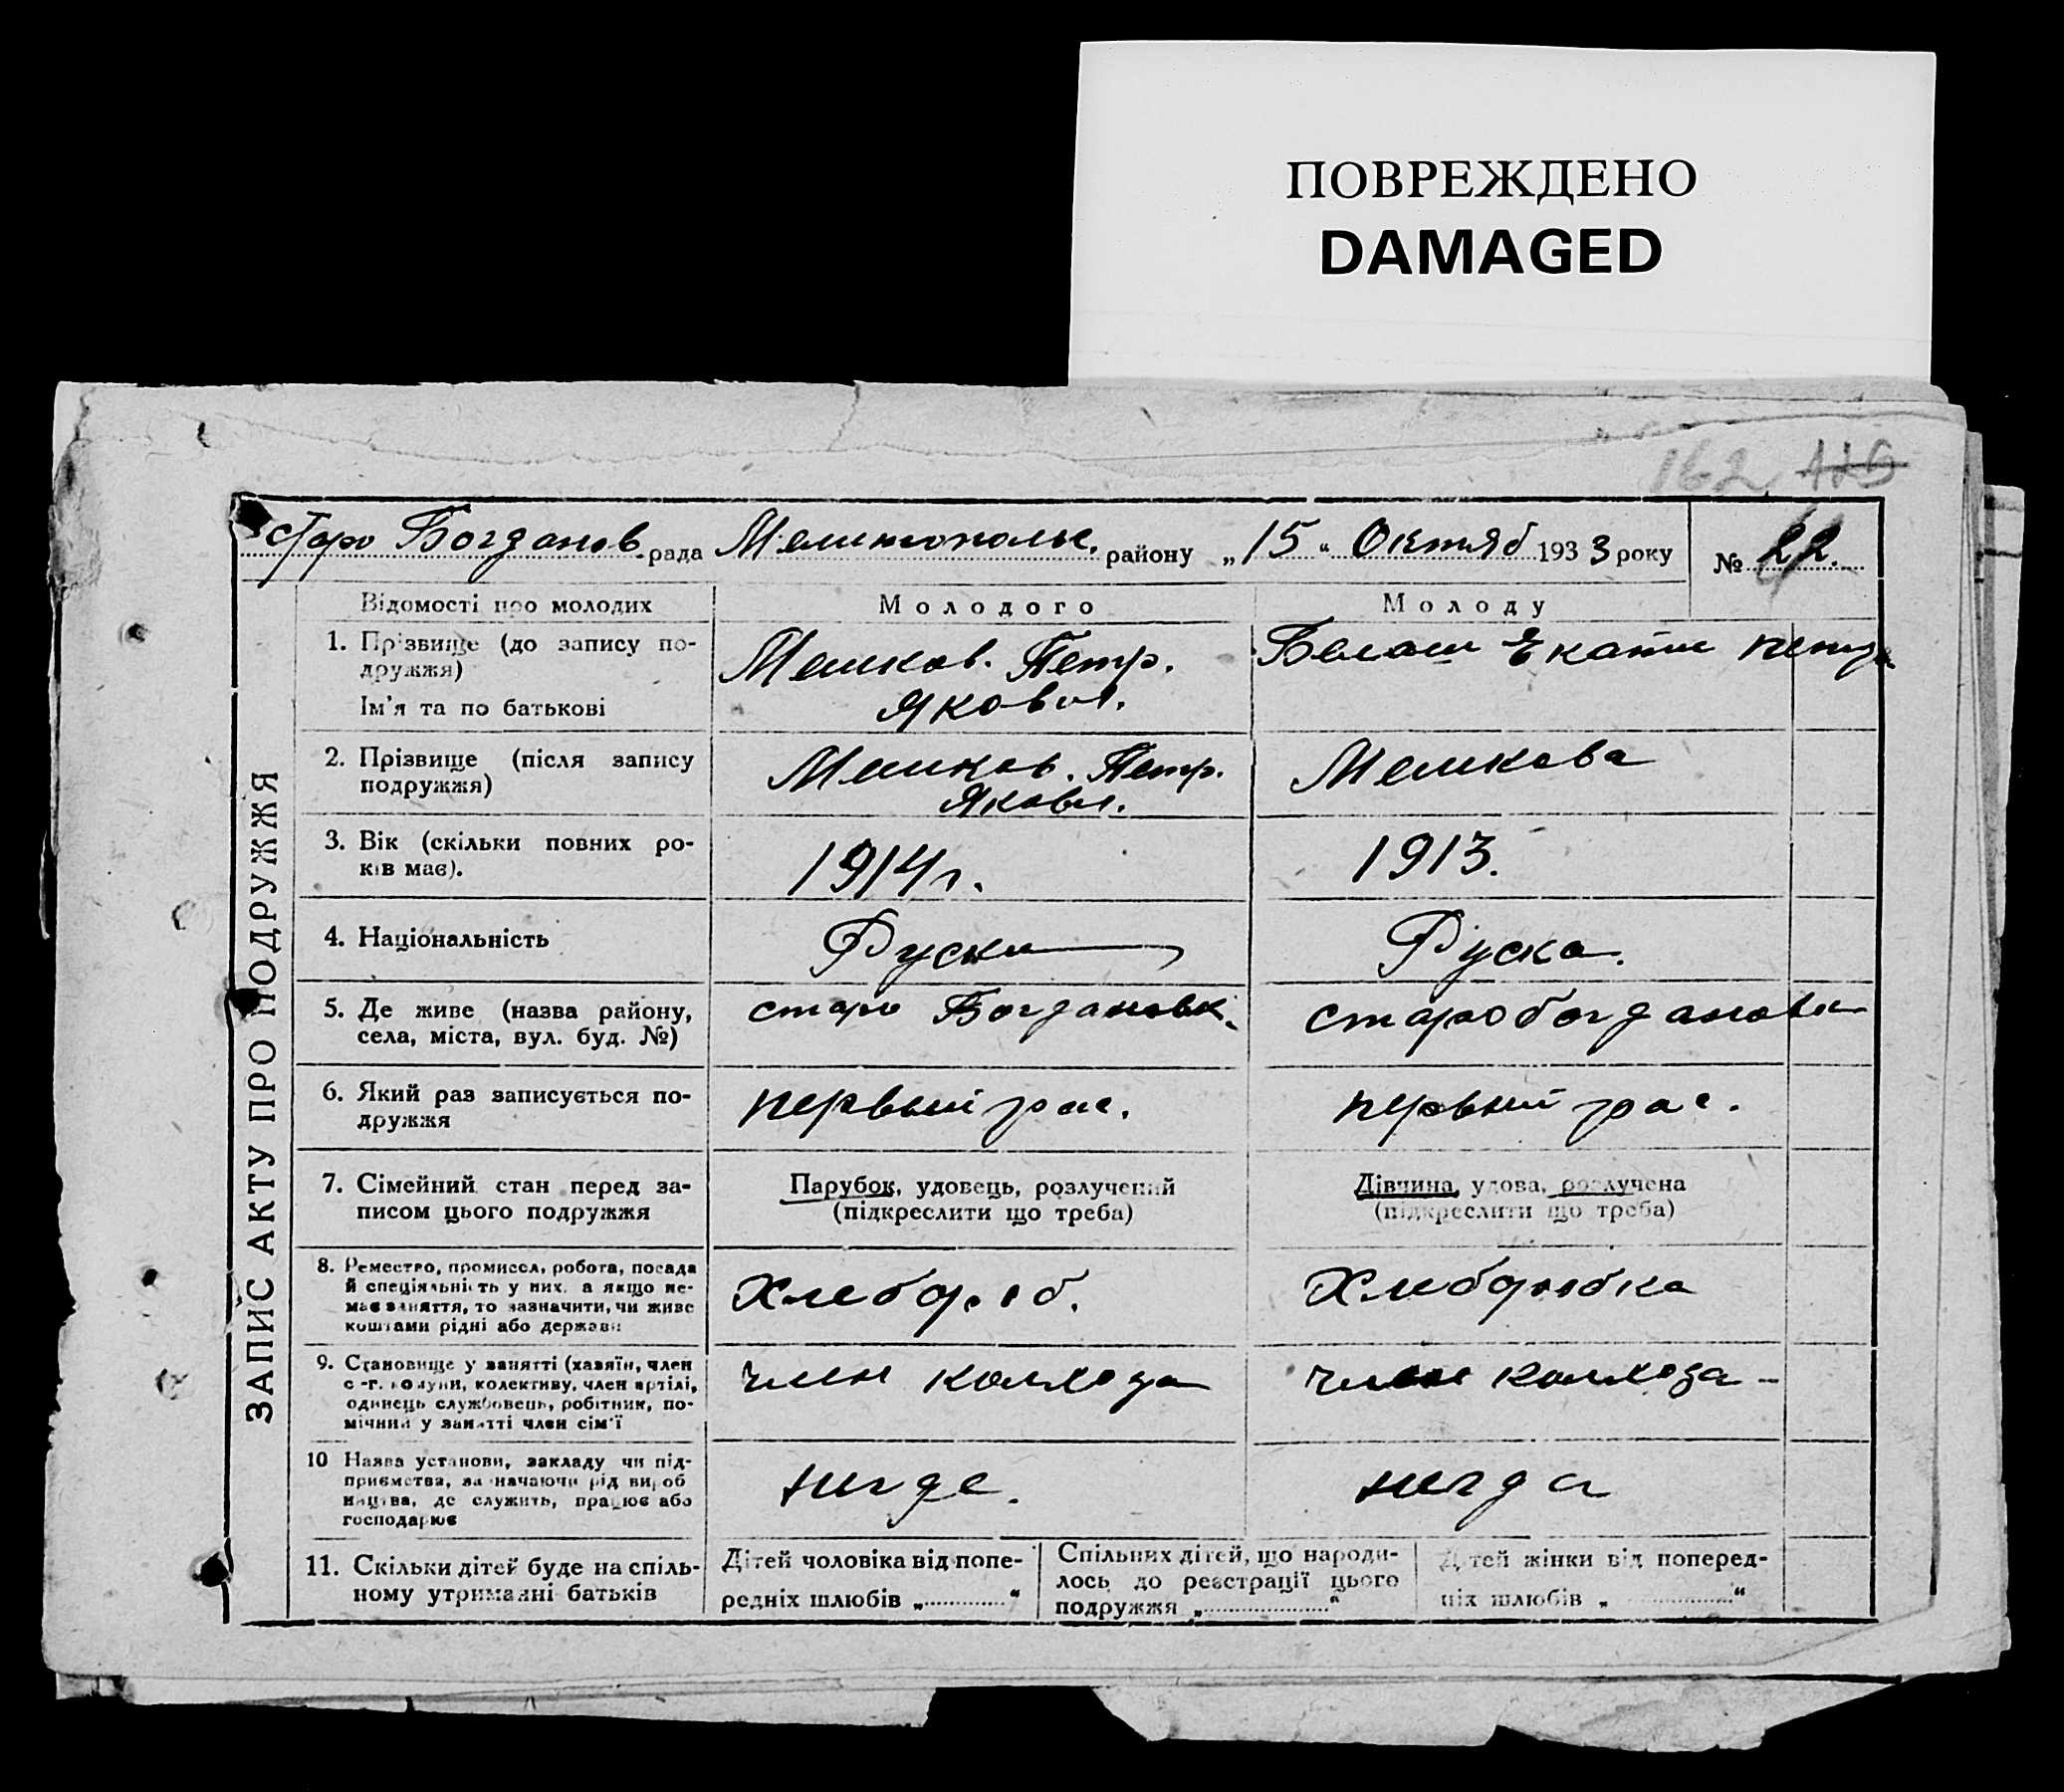 ПОВРЕЖДЕНО
DAMAGED
162 126
Старо Богданов рада Мелитопольс. району „15" Октяб 1933 року № 22.
ЗАПИС АКТУ ПРО ПОДРУЖЖЯ
Відомості про молодих
Молодого
Молоду
1. Прізвище (до запису по-
дружжя)
Ім'я та по батькові
Мешков. Петр.
Яковл.
Белаш Екати петр
2. Прізвище (після запису
подружжя)
Мешков. Петр.
Яковл.
Мешкова
3. Вік (скільки повних ро-
ків має).
1914 г.
1913.
4. Національність
Руски
Руска.
5. Де живе (назва району,
села, міста, вул. буд. №)
старо Богдановк.
старобогдановк
6. Який раз записується по-
дружжя
первый рас.
первый рас.
7. Сімейний стан перед за-
писом цього подружжя
Парубок, удовець, розлучений
(підкреслити що треба)
Дівчина, удова, розлучена
(підкреслити що треба)
8. Ремество, промисел, робота, посада
й спеціяльність у них, а якщо не-
має заняття, то зазначити, чи живе
коштами рідні або держави
Хлебороб.
Хлиборобка
9. Становище у занятті (хазяїн, член
с.-г. комуни, колективу, член артілі,
одинець службовець, робітник, по-
мічний у занятті член сім'ї
член колхоза
член колхоза -
10 Назва установи, закладу чи під-
приємства, зазначаючи рід вироб
ництва, де служить, працює або
господарює
нигде.
нигде
11. Скільки дітей буде на спіль-
ному утриманні батьків
Дітей чоловіка від попе-
редніх шлюбів „............"
Спільних дітей, що народи-
лось до реєстрації цього
подружжя „..................."
Дітей жінки від поперед-
ніх шлюбів „................"